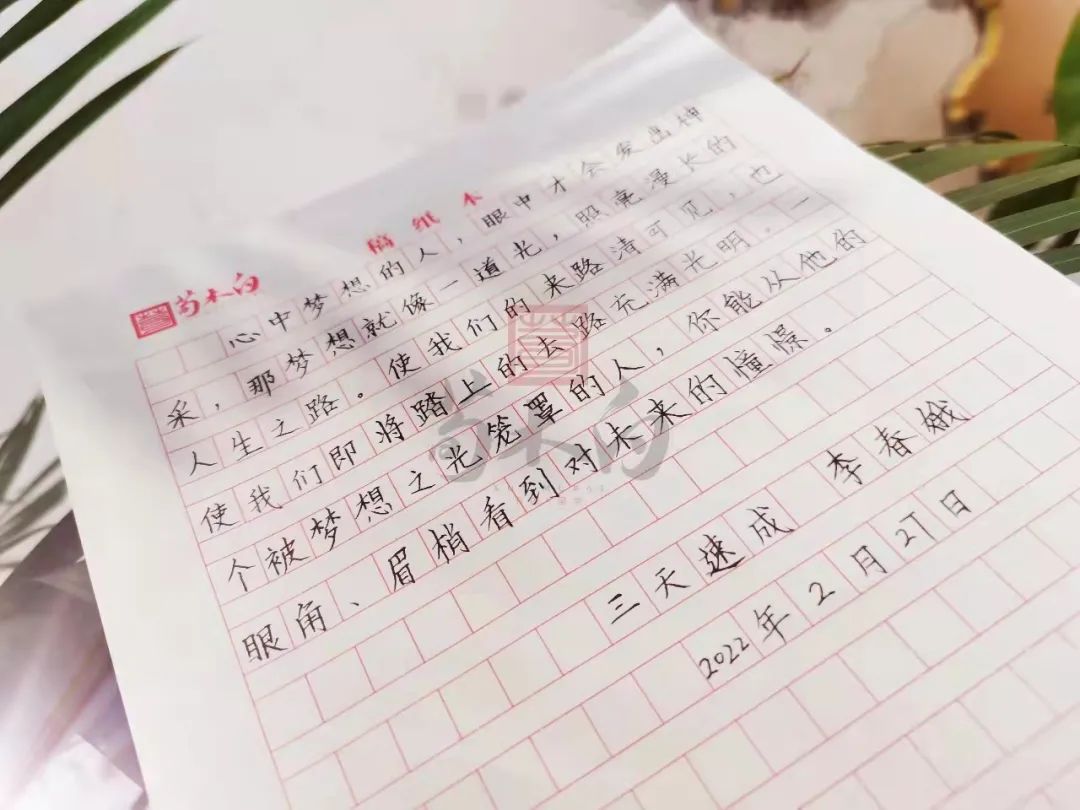 稿纸本
苟木白
心中梦想的人，眼中才会发出神
采，那梦想就像一道光，照亮漫长的
人生之路。使我们的来路清可见，也
使我们即将踏上的去路充满光明。一
个被梦想之光笼罩的人，你能从他的
眼角、眉梢看到对未来的憧憬。
三天速成 李春娥
2022年2月27日